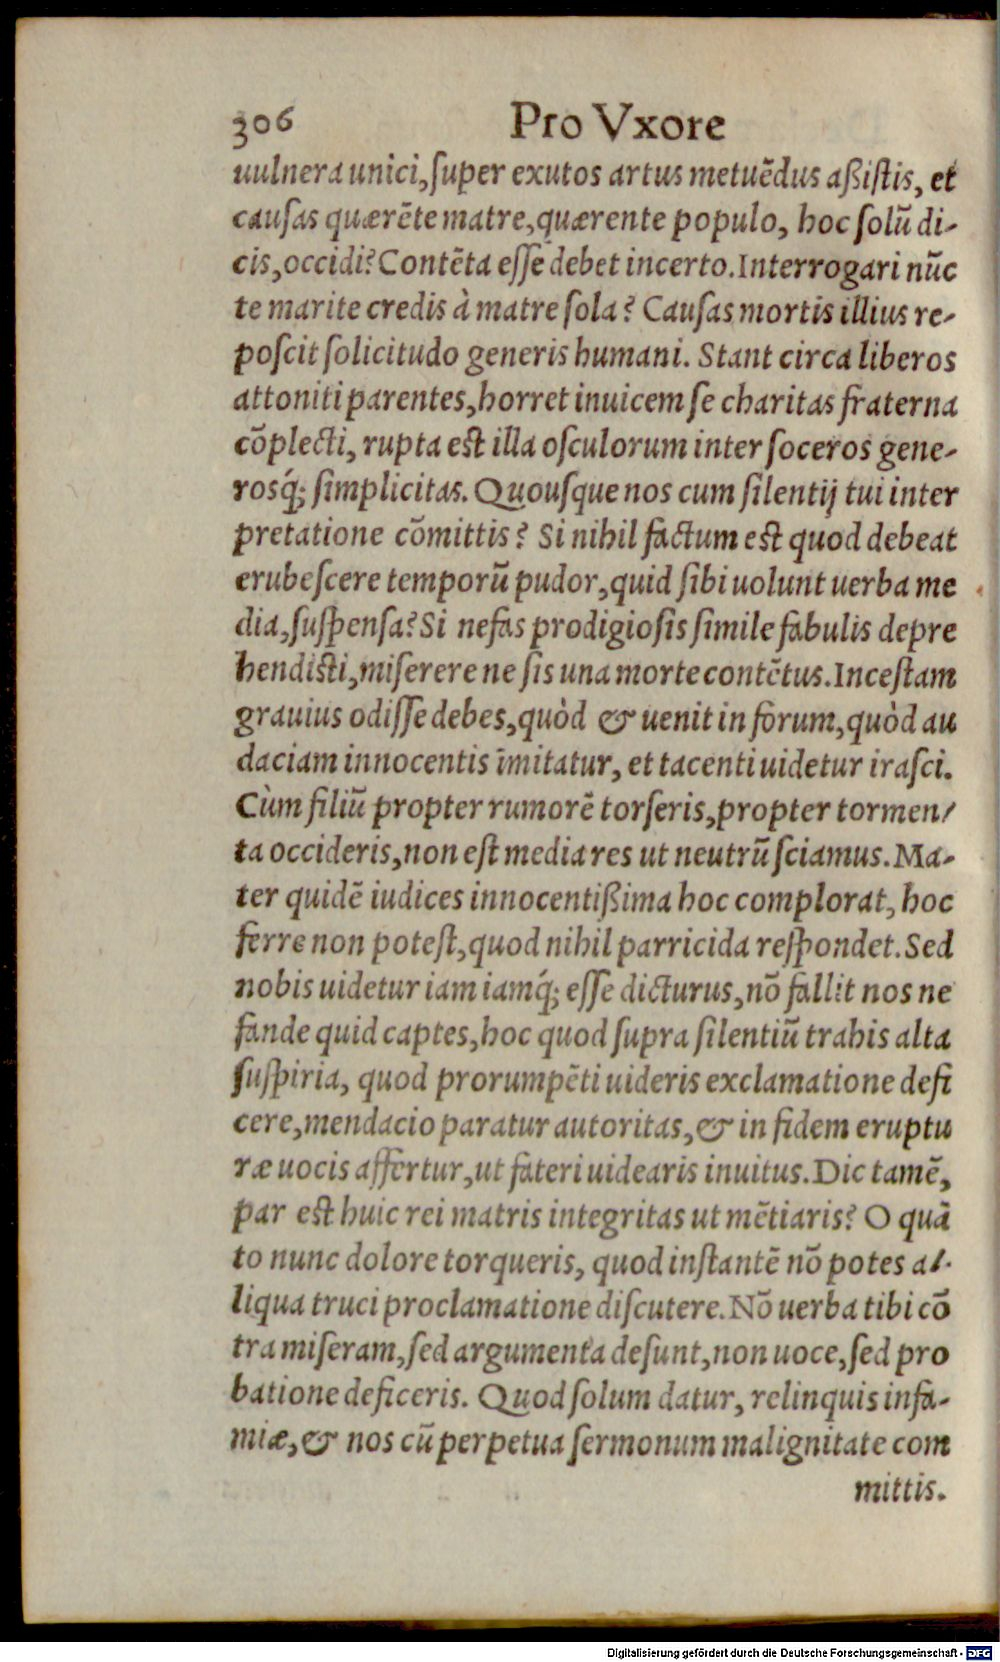 306 Pro Vxore
uulnera unici, ſuper exutos artus metuẽdus aßiſtis, et
cauſas quærẽte matre, quærente populo, hoc ſolũ di-
cis, occidi? Contẽta eſſe debet incerto. Interrogari nũc
te marite credis à matre ſola? Cauſas mortis illius re-
poſcit ſolicitudo generis humani. Stant circa liberos
attoniti parentes, horret inuicem ſe charitas fraterna
cõplecti, rupta est illa oſculorum inter ſoceros gene-
rosq́; ſimplicitas. Quouſque nos cum ſilentij tui inter
pretatione cõmittis? Si nihil factum est quod debeat
erubeſcere temporũ pudor, quid ſibi uolunt uerba me
dia, ſuſpenſa? Si nefas prodigioſis ſimile fabulis depre
hendisti, miſerere ne ſis una morte contẽtus. Inceſtam
grauius odiſſe debes, quòd & uenit in forum, quòd au
daciam innocentis ĩmitatur, et tacenti uidetur iraſci.
Cùm filiũ propter rumorẽ torſeris, propter tormen/
ta occideris, non eſt media res ut neutrũ ſciamus. Ma-
ter quidẽ iudices innocentißima hoc complorat, hoc
ferre non poteſt, quod nihil parricida reſpondet. Sed
nobis uidetur iam iamq́; eſſe dicturus, nõ fallit nos ne
fande quid captes, hoc quod ſupra ſilentiũ trahis alta
ſuſpiria, quod prorumpẽti uideris exclamatione defi
cere, mendacio paratur autoritas, & in fidem eruptu
ræ uocis affertur, ut fateri uidearis inuitus. Dic tamẽ,
par est huic rei matris integritas ut mẽtiaris? O quã
to nunc dolore torqueris, quod inſtantẽ nõ potes al-
liqua truci proclamatione diſcutere. Nõ uerba tibi cõ
tra miſeram, ſed argumenta deſunt, non uoce, ſed pro
batione deficeris. Quod ſolum datur, relinquis infa-
miæ, & nos cũ perpetua ſermonum malignitate com
mittis.
Digitalisierung gefördert durch die Deutsche Forschungsgemeinschaft - DFG